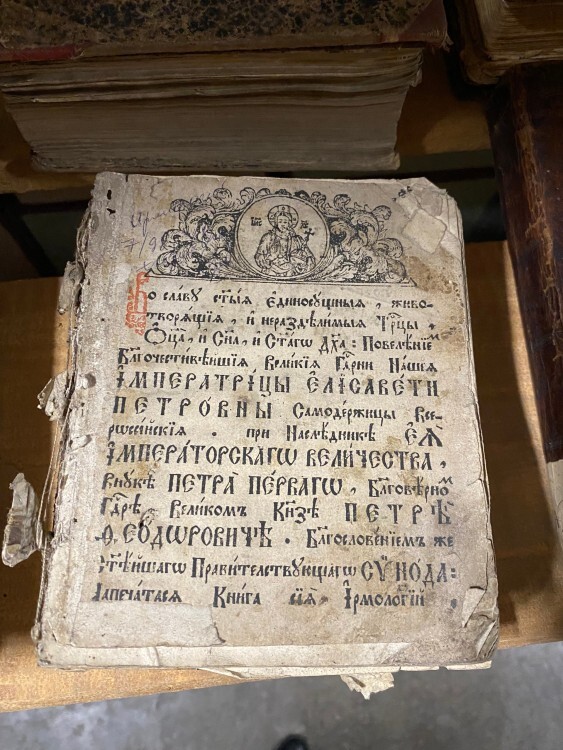 Во славу ст҃ыѧ единосущныѧ, живо-
творѧщїѧ, и нераздѣлимыѧ трⷪ҇цы,
Ѻц҃а, и Сн҃а, и Ст҃агѡ Дх҃а: Повелѣнїемъ
Благочестивѣйшїѧ Великїѧ Гдⷭ҇рни Нашеѧ
ІМПЕРАТРІЦЫ ЕЛІСАВЕТИ
ПЕТРОВНЫ Самодержицы Все-
рѡссїйскїѧ. при Наслѣдникѣ ЕѦ
ІМПЕРАТОРСКАГѠ ВЕЛИЧЕСТВА,
Внукѣ ПЕТРА ПЕРВАГѠ, Бл҃говѣрномъ
Гдⷭ҇рѣ Великомъ Кн҃зѣ ПЕТРѢ
ѲЕОДѠРОВИЧѢ. Бл҃гословенїемъ же
ст҃ѣйшагѡ Правителствующагѡ СѴНОДА:
Напечатасѧ Книга сїѧ Ірмологїй.